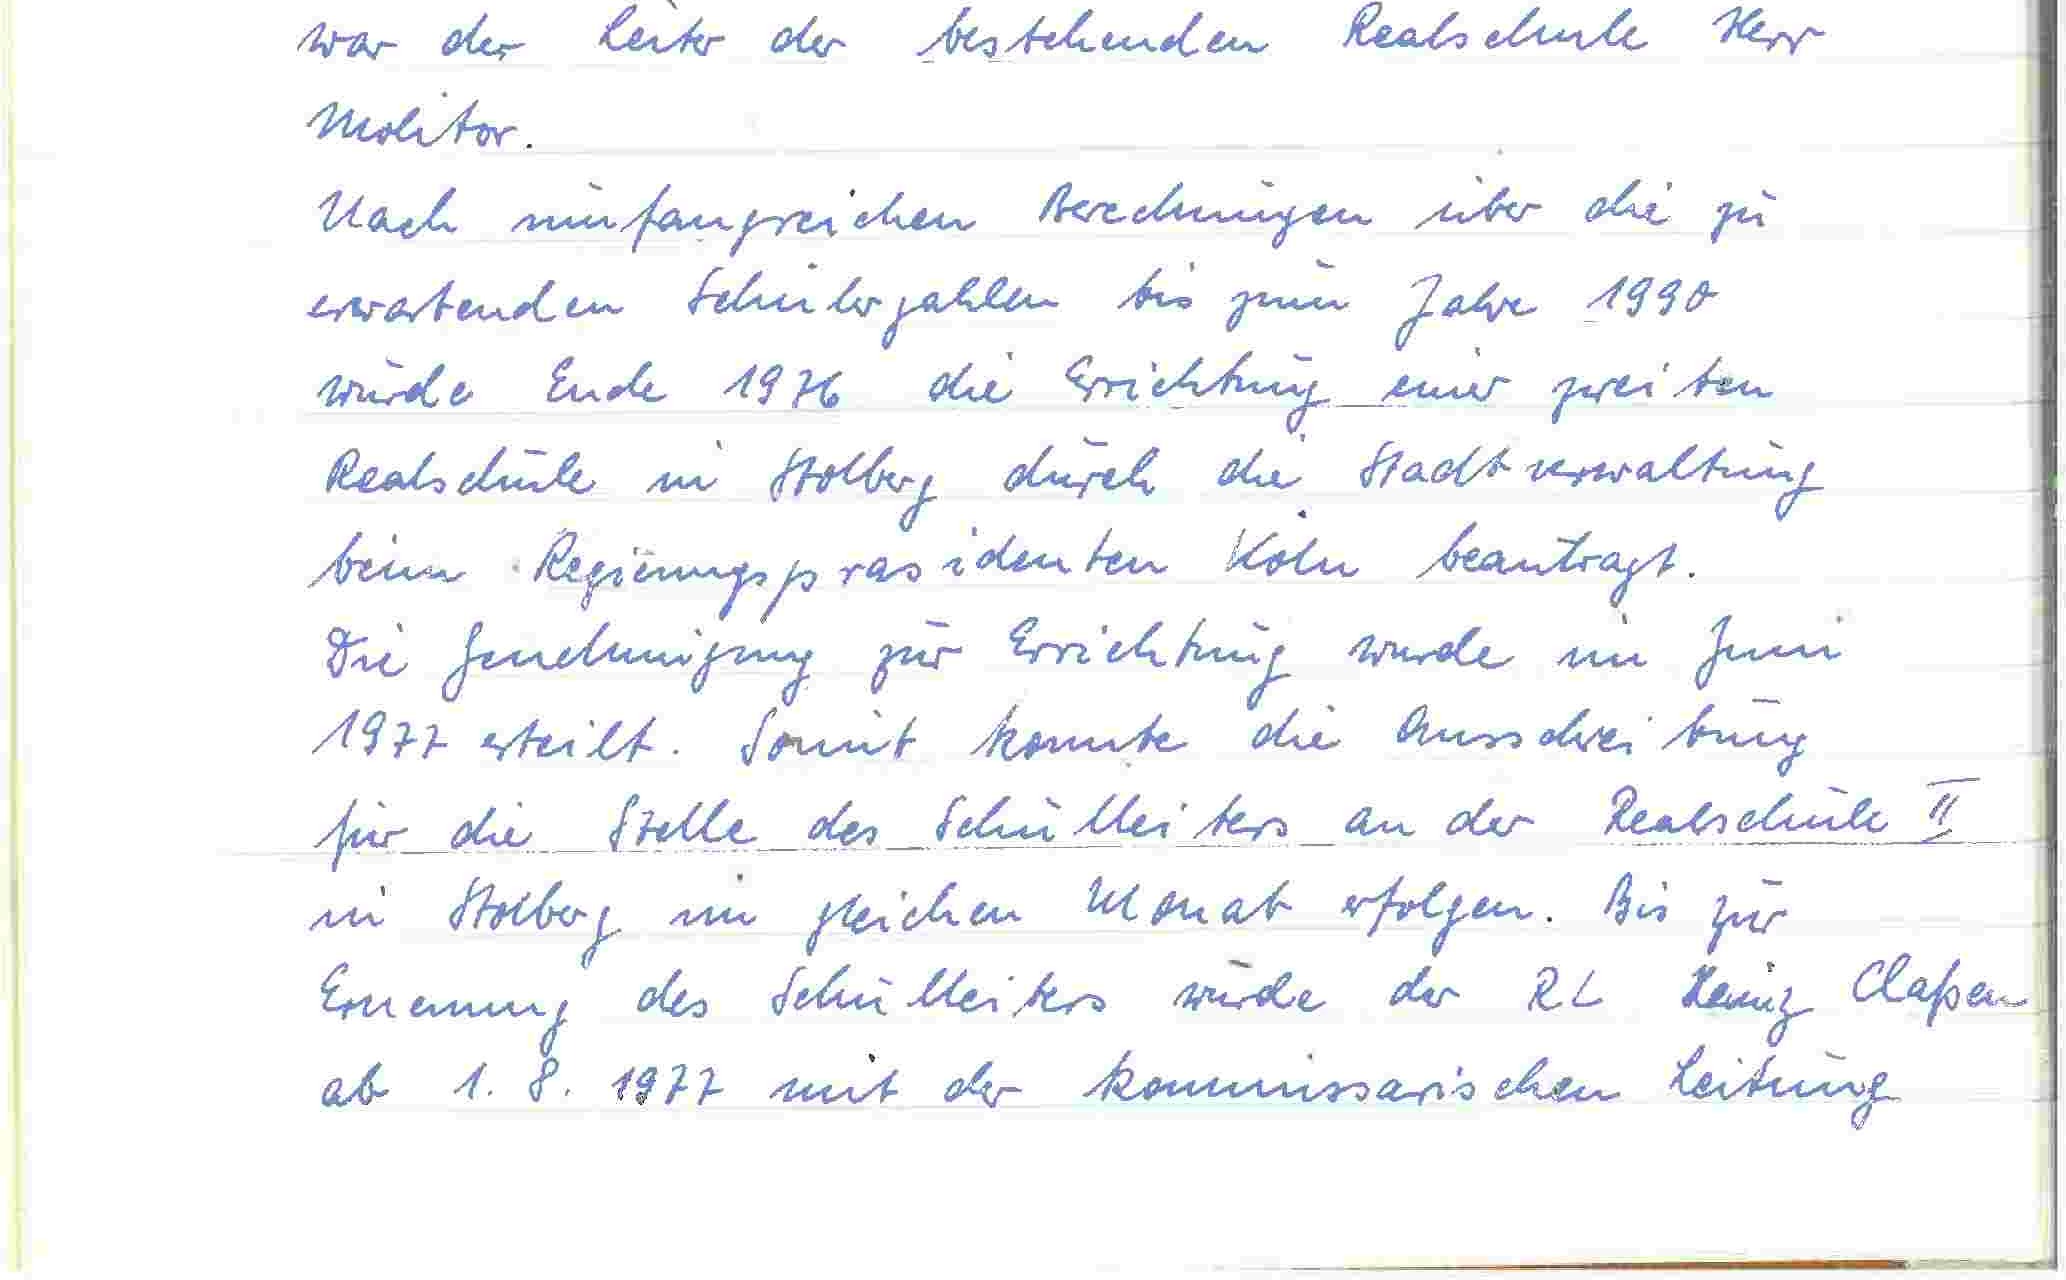 war der Leiter der bestehenden Realschule Herr
Molitor.
Nach umfangreichen Berechnungen über die zu
erwartenden Schülerzahlen bis zum Jahre 1990
wurde Ende 1976 die Errichtung einer zweiten
Realschule in Stolberg durch die Stadtverwaltung
beim Regierungspräsidenten Köln beantragt.
Die Genehmigung zur Errichtung wurde im Juni
1977 erteilt. Somit konnte die Ausschreibung
für die Stelle des Schulleiters an der Realschule II
in Stolberg im gleichen Monat erfolgen. Bis zur
Ernennung des Schulleiters wurde der RL Heinz Claßen
ab 1. 8. 1977 mit der kommissarischen Leitung